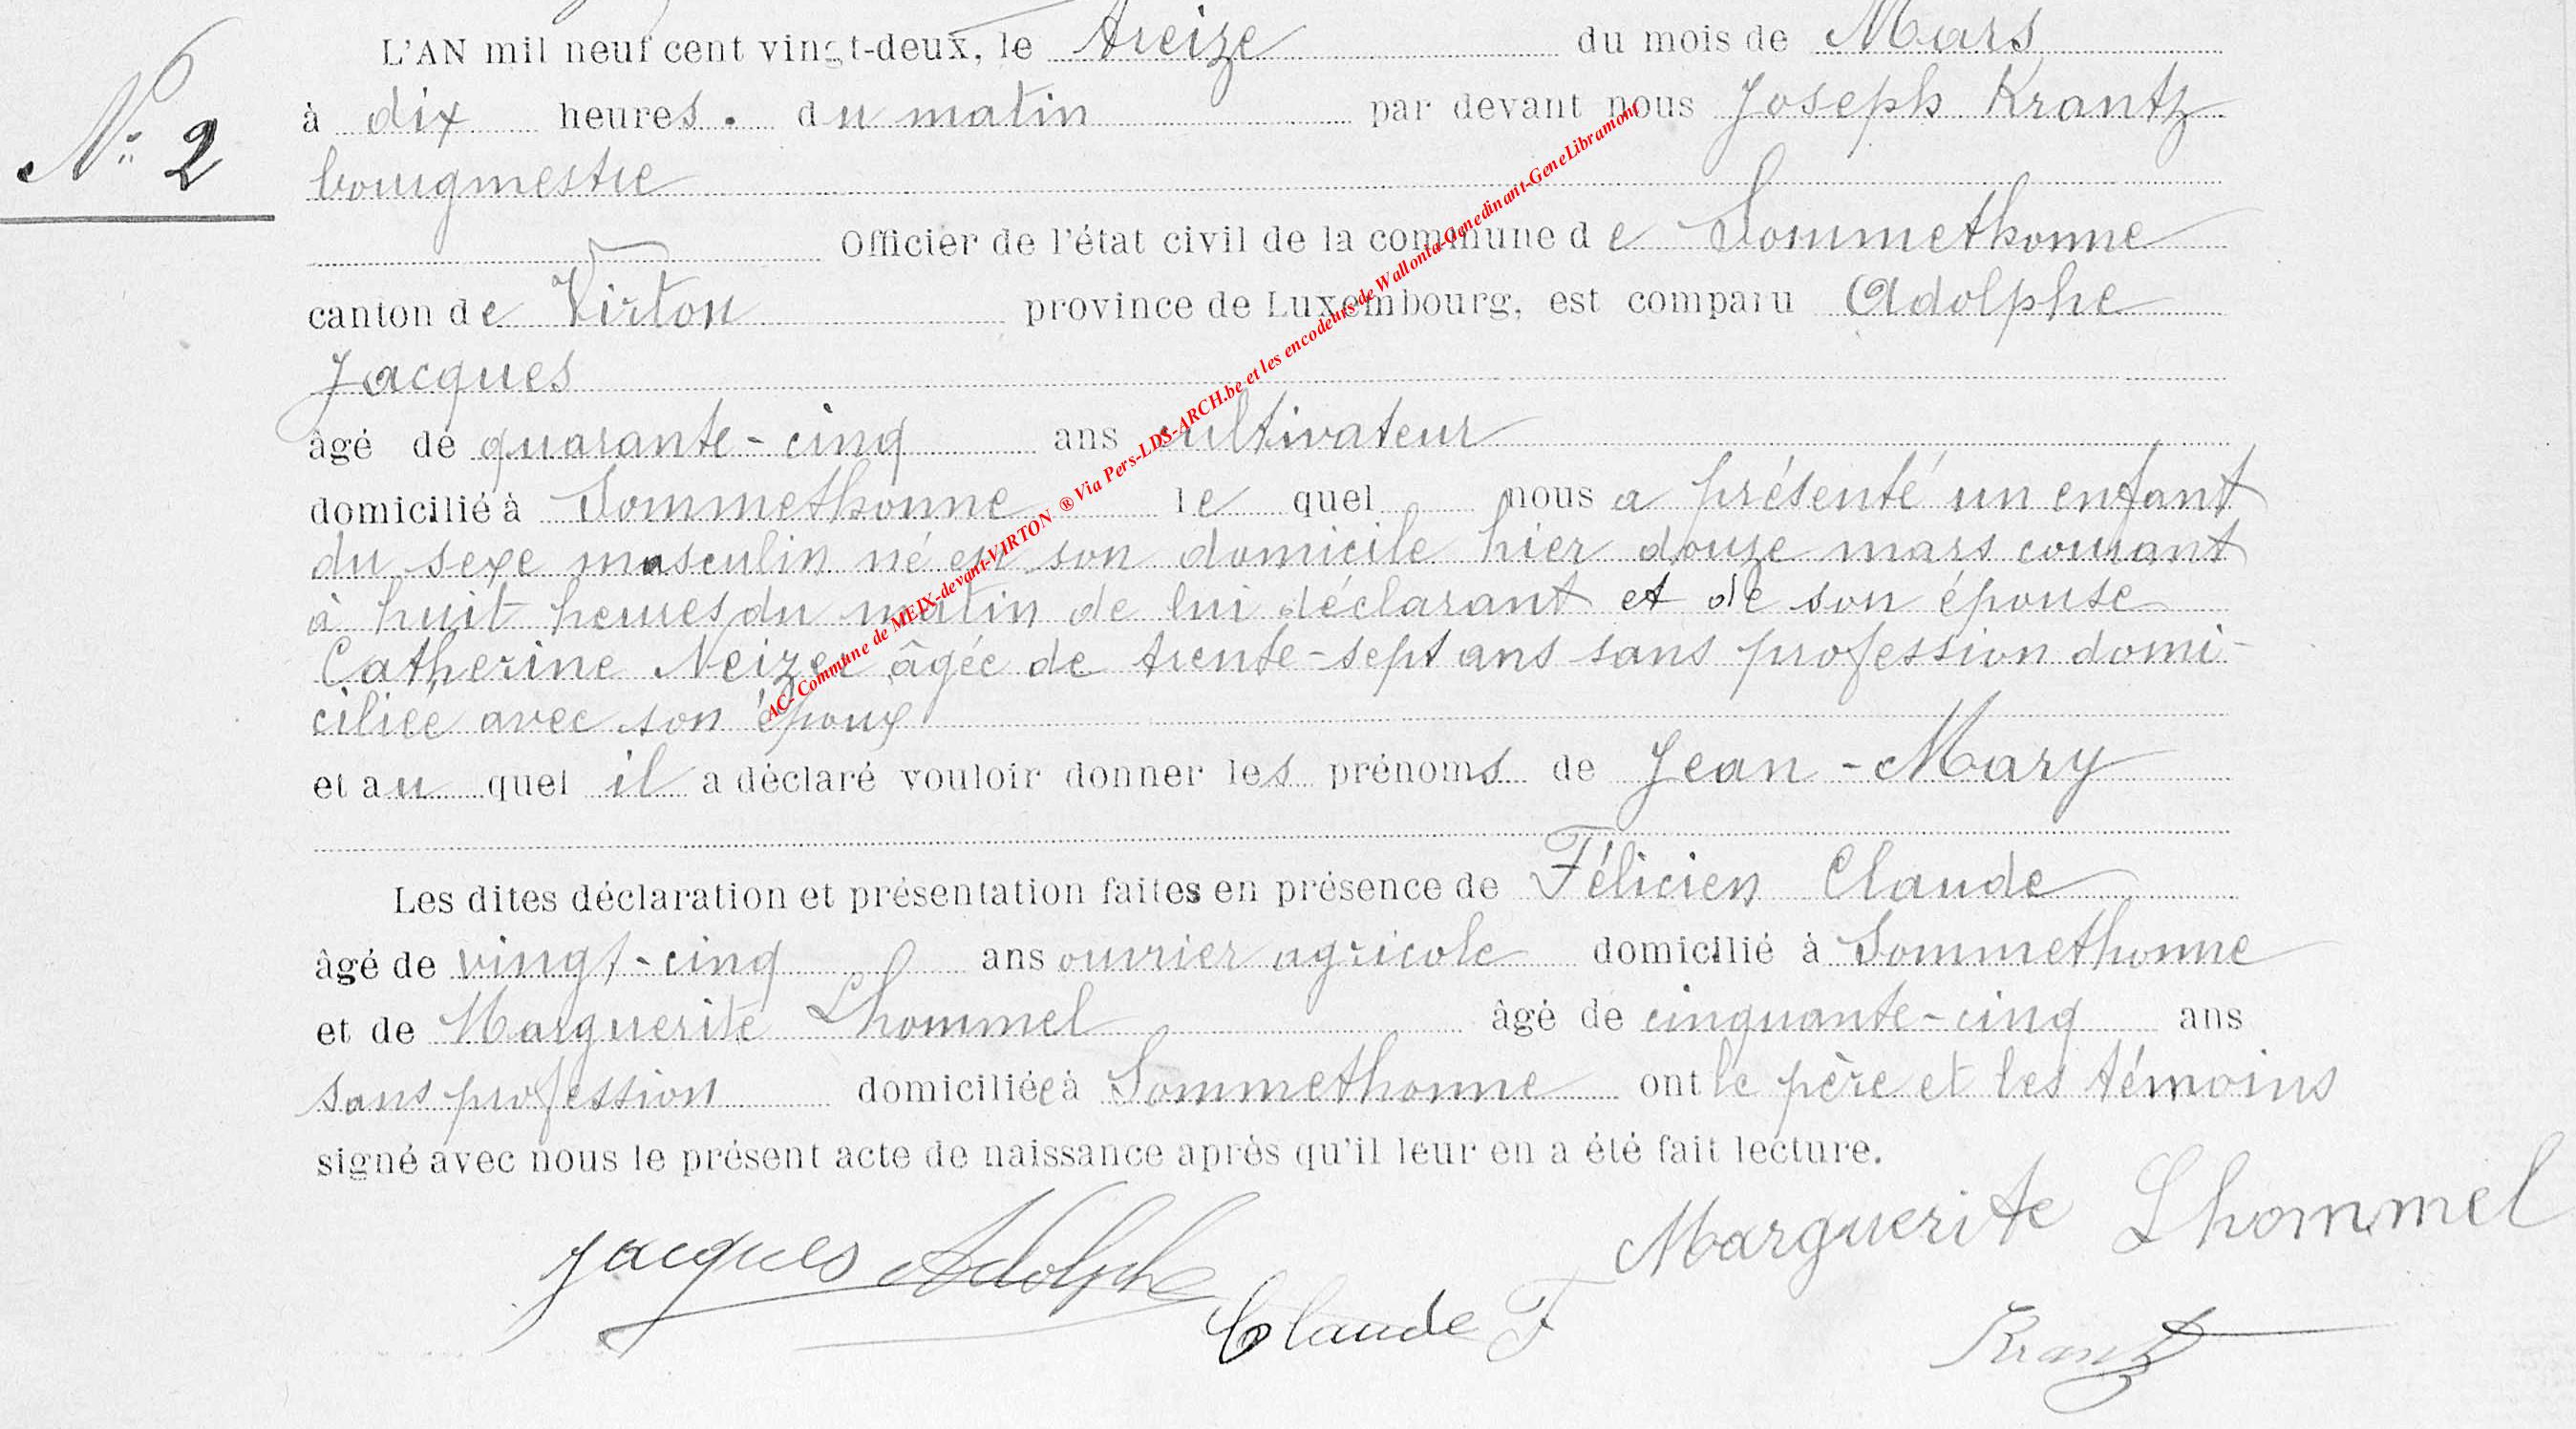 L'AN mil neuf cent vingt-deux, le treize du mois de Mars
N° 2
à dix heures. du matin par devant nous Joseph Krantz
bourgmestre
Officier de l'état civil de la commune de Sommethonne
canton de Virton province de Luxembourg, est comparu Adolphe
Jacques
âgé de quarante-cinq ans cultivateur
domicilié à Sommethonne le quel nous a présenté un enfant
du sexe masculin né en son domicile hier douze mars courant
à huit heures du matin de lui déclarant et de son épouse
Catherine Neizer âgée de trente-sept ans sans profession domi-
ciliée avec son époux
et au quel il a déclaré vouloir donner les prénoms de Jean-Mary
Les dites déclaration et présentation faites en présence de Félicien Claude
âgé de vingt-cinq ans ouvrier agricole domicilié à Sommethonne
et de Marguerite Lhommel âgé de cinquante-cinq ans
sans profession domiciliée à Sommethonne ont le père et les témoins
signé avec nous le présent acte de naissance après qu'il leur en a été fait lecture.
Marguerite Lhommel
Jacques Adolphe
Claude F
Krantz
AC- Commune de MEIX-devant-VIRTON ® Via Pers-LDS-ARCH.be et les encodeurs de Wallonia-Genedinant-GeneLibramont